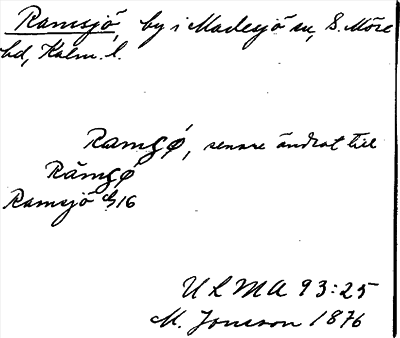 Ramsjö, by i Madesjö sn, S. Möre
hd, Kalm. l.
Ramgø, senare ändrat till
Rämgø
Ramsjö G16
ULMA 93:25
M. Jonsson 1876